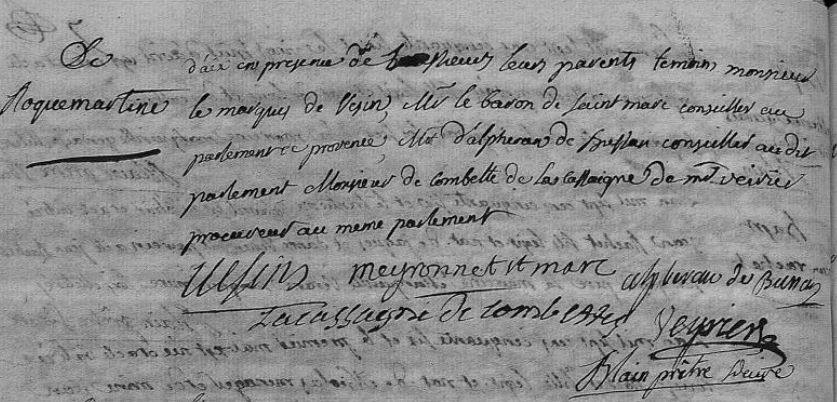 De
Roquemartine
d'aix en presence de plusieurs leurs parents temoins monsieur
le marquis de Vesin, Mr le baron de saint marc conseiller au
parlement de provence, Mr d'alpheran de bussan conseiller au dit
parlement Monsieur de combette de la cassaigne de mr veirier
procureur au meme parlement
Vesins meyronnet st marc alpheran de Bussan
Lacassagne de combettes Veyrier
Blain prêtre